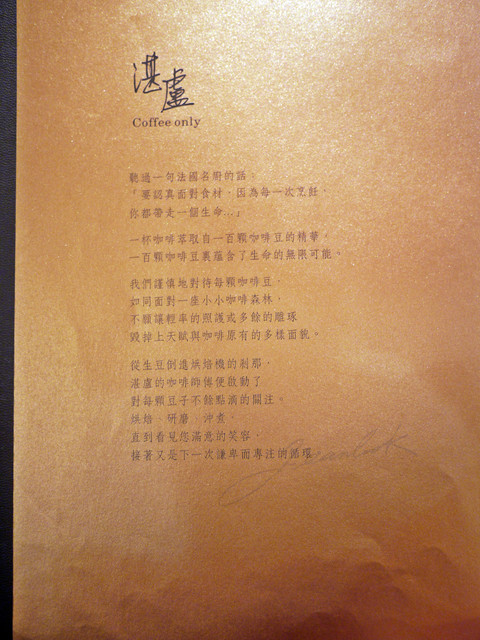 湛盧
Coffee only
聽過一句法國名廚的話。
「要認真面對食材，因為每一次烹飪，
你都帶走一個生命…」
一杯咖啡萃取自一百顆咖啡豆的精華，
一百顆咖啡豆裏蘊含了生命的無限可能。
我們謹慎地對待每顆咖啡豆，
如同面對一座小小咖啡森林，
不願讓輕率的照護或多餘的雕琢
毀掉上天賦與咖啡原有的多樣面貌。
從生豆倒進烘焙機的剎那，
湛盧的咖啡師傅便啟動了
對每顆豆子不餘點滴的關注。
烘焙，研磨，沖煮，
直到看見您滿意的笑容，
接著又是下一次謙卑而專注的循環